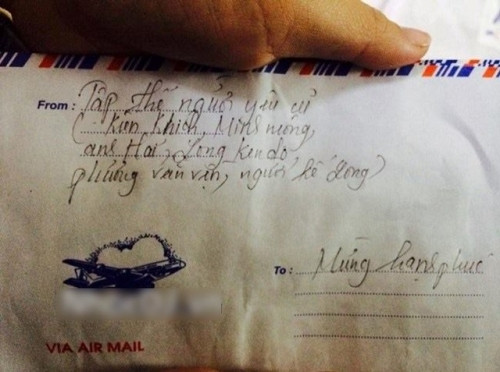 From : Tập thể người yêu cũ
(Kiên Khích, Minh mộng,
anh Hải, Long Kendo,
phương vân vận, người kế đóng)
To : Mừng hạnh phúc
VIA AIR MAIL